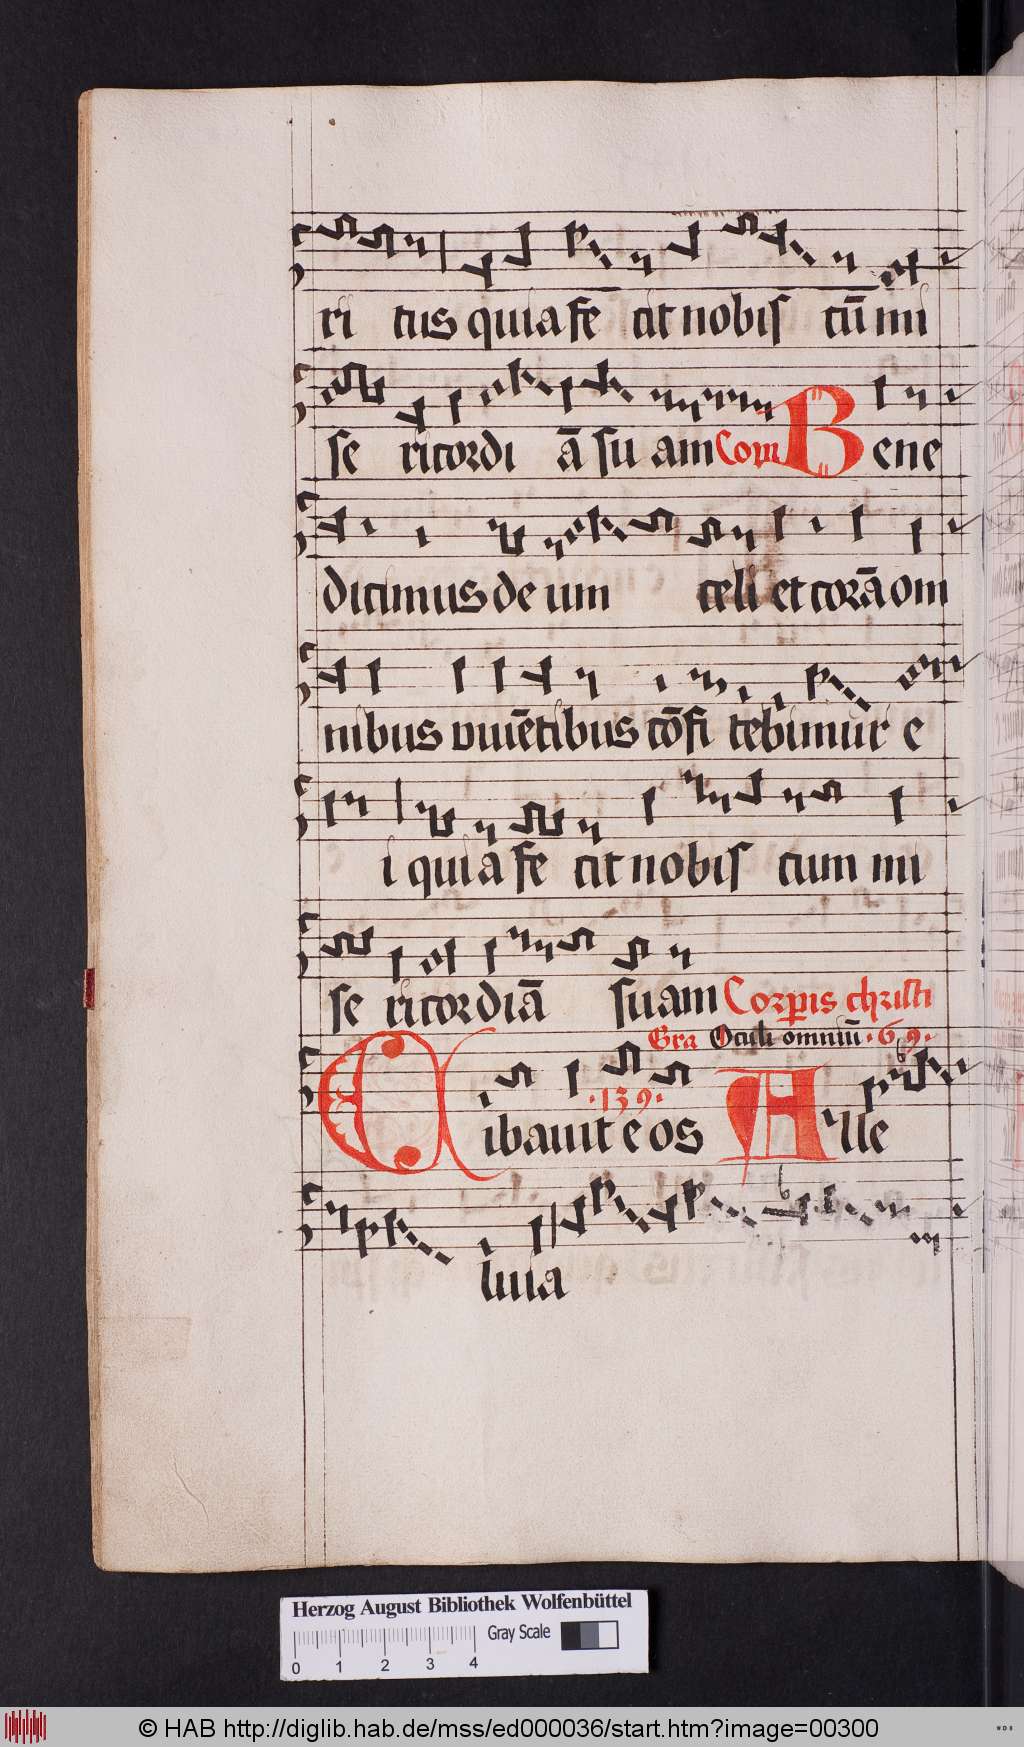 ri tus quia fe cit nobis cū mi
se ricordi ā su am Com Bene
dicimus de um celi et corā om
nibus viuētibus cōfi tebimur e
i quia fe cit nobis cum mi
se ricordiā suam Corpis christi
Gra Oculi omniū · 69 ·
· 139 ·
Cibauit eos Alle
luia
Herzog August Bibliothek Wolfenbüttel
Gray Scale
0 1 2 3 4
© HAB http://diglib.hab.de/mss/ed000036/start.htm?image=00300